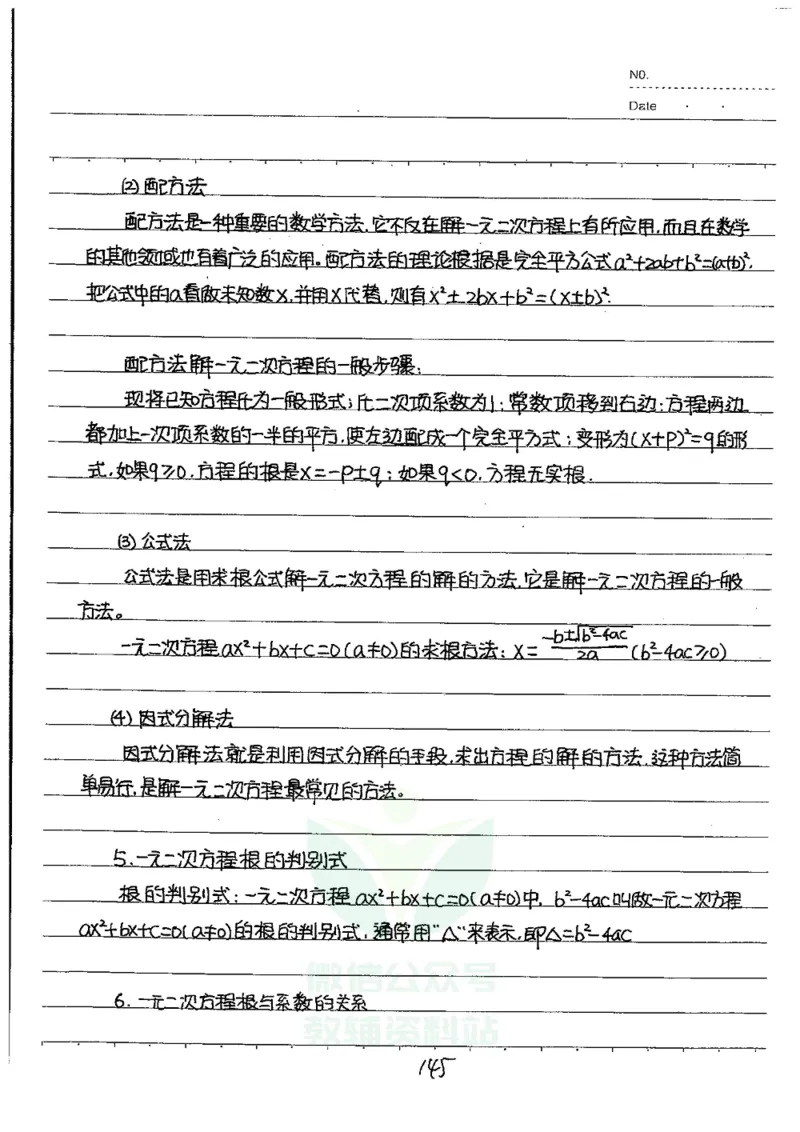 NO.
Date
(2)配方法
配方法是一种重要的数学方法,它不仅在解一元二次方程上有所应用,而且在数学
的其他领域也有着广泛的应用。配方法的理论根据是完全平方公式a²+2ab+b²=(a+b)²,
把公式中的a看做未知数x,并用x代替,则有x²±2bx+b²=(x±b)².
配方法解一元二次方程的一般步骤:
现将已知方程化为一般形式;化二次项系数为1;常数项移到右边;方程两边
都加上一次项系数的一半的平方,使左边配成一个完全平方式;变形为(x+p)²=q的形
式,如果q≥0,方程的根是x=-p±q;如果q<0,方程无实根.
(3)公式法
公式法是用求根公式解一元二次方程的解的方法,它是解一元二次方程的一般
方法。
一元二次方程ax²+bx+c=0(a≠0)的求根方法:x=(-b±√(b²-4ac))/2a (b²-4ac≥0)
(4)因式分解法
因式分解法就是利用因式分解的手段,求出方程的解的方法,这种方法简
单易行,是解一元二次方程最常见的方法。
5.一元二次方程根的判别式
根的判别式:一元二次方程ax²+bx+c=0(a≠0)中,b²-4ac叫做一元二次方程
ax²+bx+c=0(a≠0)的根的判别式,通常用"△"来表示,即△=b²-4ac
微信公众号
6.一元二次方程根与系数的关系
教辅资料站
145